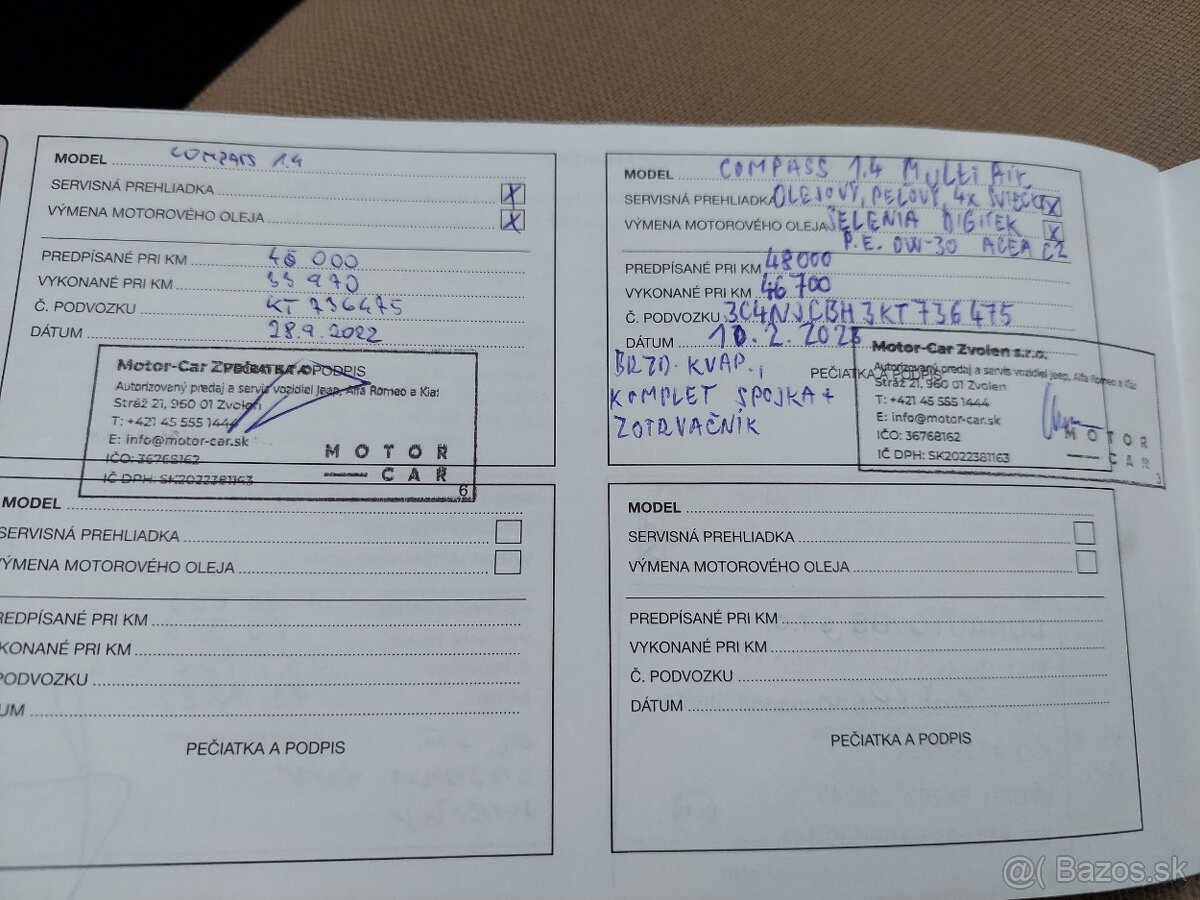 MODEL COMPASS 1.4
SERVISNÁ PREHLIADKA X
VÝMENA MOTOROVÉHO OLEJA X
PREDPÍSANÉ PRI KM 45 000
VYKONANÉ PRI KM 33 970
Č. PODVOZKU KT 736475
DÁTUM 28.9.2022
PEČIATKA A PODPIS
Motor-Car Zvolen s.r.o.
Autorizovaný predaj a servis vozidiel Jeep, Alfa Romeo a Kia:
Stráž 21, 960 01 Zvolen
T: +421 45 555 1444
E: info@motor-car.sk
IČO: 36768162
IČ DPH: SK2022381163
MOTOR
CAR
6
MODEL COMPASS 1.4 MULTI AIR
SERVISNÁ PREHLIADKA OLEJOVÝ, PEĽOVÝ, 4X SVIEČKY X
VÝMENA MOTOROVÉHO OLEJA SELENIA DIGITEK X
P.E. 0W-30 ACEA C2
PREDPÍSANÉ PRI KM 48000
VYKONANÉ PRI KM 46 700
Č. PODVOZKU 3C4NJCBH3KT736475
DÁTUM 10.2.2023
BRZD. KVAP.,
KOMPLET SPOJKA +
ZOTRVAČNÍK
PEČIATKA A PODPIS
Motor-Car Zvolen s.r.o.
Autorizovaný predaj a servis vozidiel Jeep, Alfa Romeo a Kia:
Stráž 21, 960 01 Zvolen
T: +421 45 555 1444
E: info@motor-car.sk
IČO: 36768162
IČ DPH: SK2022381163
MOTOR
CAR
3
MODEL
SERVISNÁ PREHLIADKA
VÝMENA MOTOROVÉHO OLEJA
REDPÍSANÉ PRI KM
KONANÉ PRI KM
PODVOZKU
UM
PEČIATKA A PODPIS
MODEL
SERVISNÁ PREHLIADKA
VÝMENA MOTOROVÉHO OLEJA
PREDPÍSANÉ PRI KM
VYKONANÉ PRI KM
Č. PODVOZKU
DÁTUM
PEČIATKA A PODPIS
@( Bazos.sk